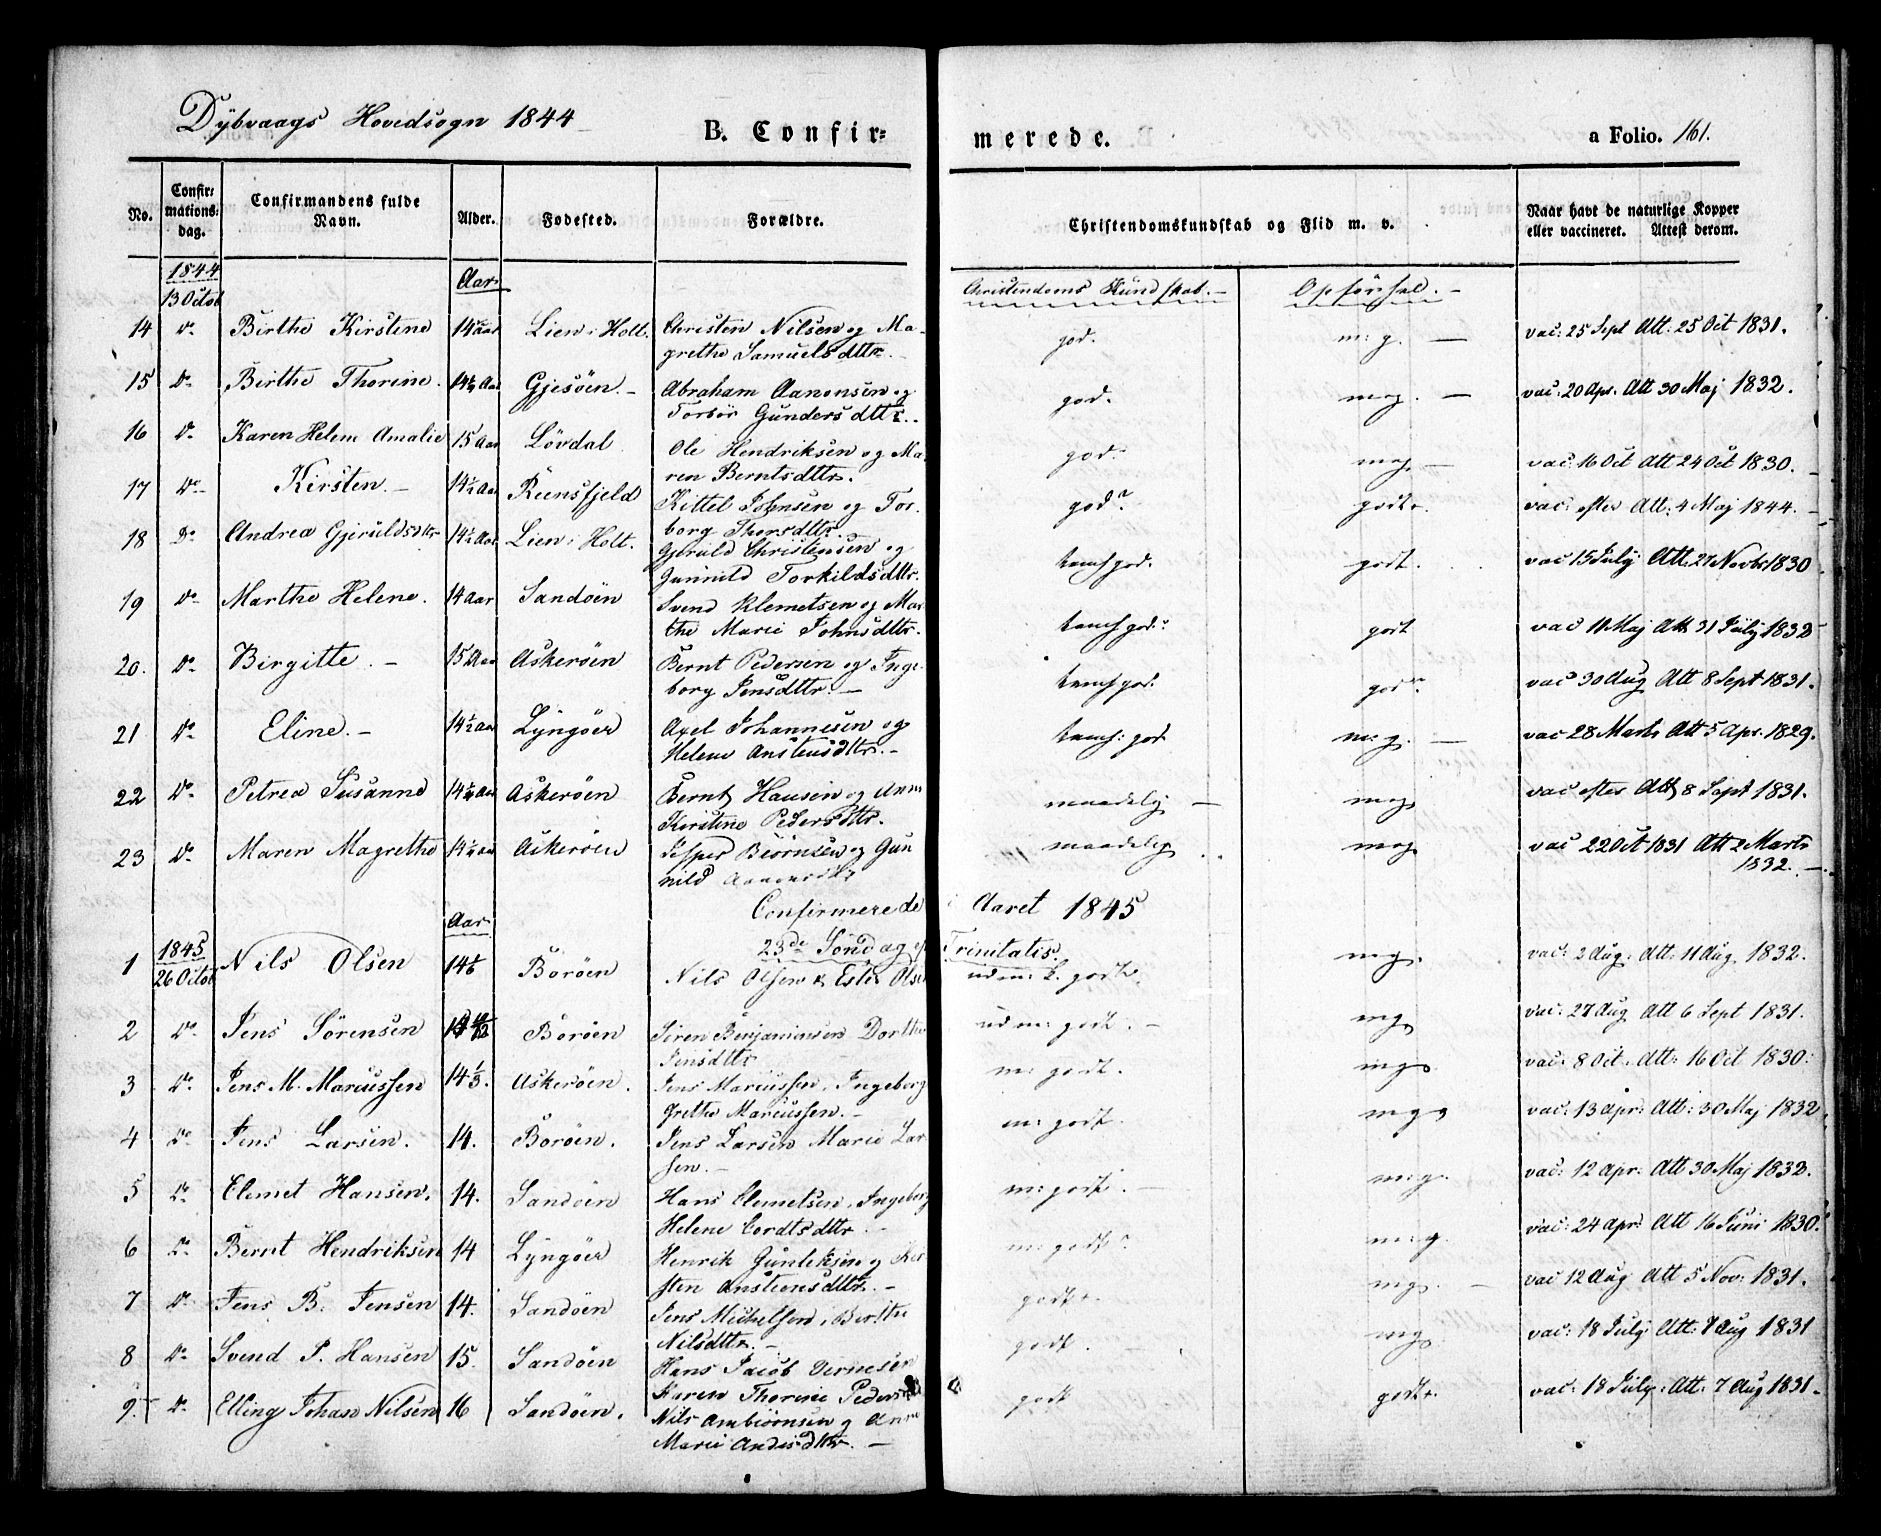 Dybvaags Hovedsogn 1844
B. Confir=
merede.
a Folio. 161.
No.
Confir= mations= dag.
Confirmandens fulde Navn.
Alder.
Fødested.
Forældre.
Christendomskundskab og Flid m. v.
Naar havt de naturlige Kopper eller vaccineret. Attest derom.
1844 13 Octob Aar Christendoms Kundskab.- Opførsel.-
14 do Birthe Kirstine 14 Aar Lien i Holt. Christen Nilsen og Ma- god. m: g. - vac: 25 Sept Att: 25 Oct 1831.
grethe Samuelsdttr.-
15 do Birthe Thorine. 14 Aar Gjesöen.- Abraham Aanonsen og god. mg. - vac: 20 Apr. Att 30 Maj 1832.
Torbör Gundersdttr.
16 do Karen Helene Amalie 15 Aar Lövdal Ole Hendriksen og Ma- god. mg. - vac: 16 Oct Att 24 Oct 1830.
ren Berntsdttr.
17 do Kirsten.- 14½ Aar Reensfjeld Kittel Johnsen og Tor- god. godt. vac: efter Att: 4 Maj 1844.
borg Thorsdttr.
18 do Andrea Gjeruldsdttr 14½ Aar Lien i Holt. Gjeruld Christensen og temel god. godt. vac 15 July Att: 27 Novbr 1830
Gunnild Torkildsdttr.
19 do Marthe Helene. 14 Aar Sandöen Svend Klemetsen og Mar- god. godt vac 11 Maj Att 31 July 1832
the Marie Johnsdttr.
20. do Birgitte.- 15 Aar Askeröen Bernt Pedersen og Inge- god. god. vac 30 Aug Att 8 Sept 1831.
borg Jensdttr.-
21 do Eline.- 14½ Aar Lyngöer Axel Johannesen og god m: g. - vac 28 Marts Att 5 Apr. 1829.
Helene Anstensdttr.-
22 do Petrea Susanne 14¼ Aar Askeröen Bernt Hansen og Anne maadelig - mg vac efter Att 8 Sept 1831.
Kirstine Pedersdttr.
23 do Maren Magrethe 14¼ Aar Askeröen Jesper Biörnsen og Gun maadelig mg vac 22 Oct 1831 Att 2 Marts
nild 1832.-
Confirmerede i Aaret 1845
Aar
23de Söndag ef Trinitatis.
1 1845 26 Octob Nils Olsen 14 1/6 Boröen Nils Olsen & Ester Olsen udm: k. godt. mg. vac: 2 Aug: Att: 11 Aug. 1832.
2 do Jens Sörensen Boröen Sören Benjaminsen Dorthe udm: godt.- mg vac: 27 Aug Att 6 Sept 1831.
Jensdttr
3 do Jens M. Marcussen 14 1/3. Askeröen. Jens Marcussen, Ingeborg m: godt. mg vac: 8 Oct. Att: 16 Oct 1830.
Grethe Marcussen.-
4 do Jens Larsen. 14. Boröen. Jens Larsen Marie Lar- m: godt. mg vac: 13 Apr: Att: 30 Maj 1832
sen.-
5 do Clemet Hansen. 14. Sandöen Hans Clemetsen, Ingeborg m: godt.- m:g. vac: 12 Apr: Att 30 Maj 1832.
Helene Cordtsdttr.-
6 do Bernt Hendriksen 14 Lyngöer Henrik Gunleksen og Kir- m: godt. m:g. vac: 24 Apr: Att 16 Juni 1830.
sten Anstensdttr.-
7 do Jens B. Jensen 14. Sandöen Jens Michelsen, Berthe godt. mg. - vac 12 Aug Att 5 Nov: 1831.
Nilsdttr.-
8 do Svend P. Hansen 15. Sandöen Hans Jacob Vernesen godt. mg. vac: 18 July Att: 7 Aug 1831
Karen Thorine Peders
9. do Elling Johan Nilsen 16 Sandöen. Nils Ambiörnsen og Anne godt godt. vac: 18 July: Att: 7 Aug 1831.
Marie Andersdttr.-